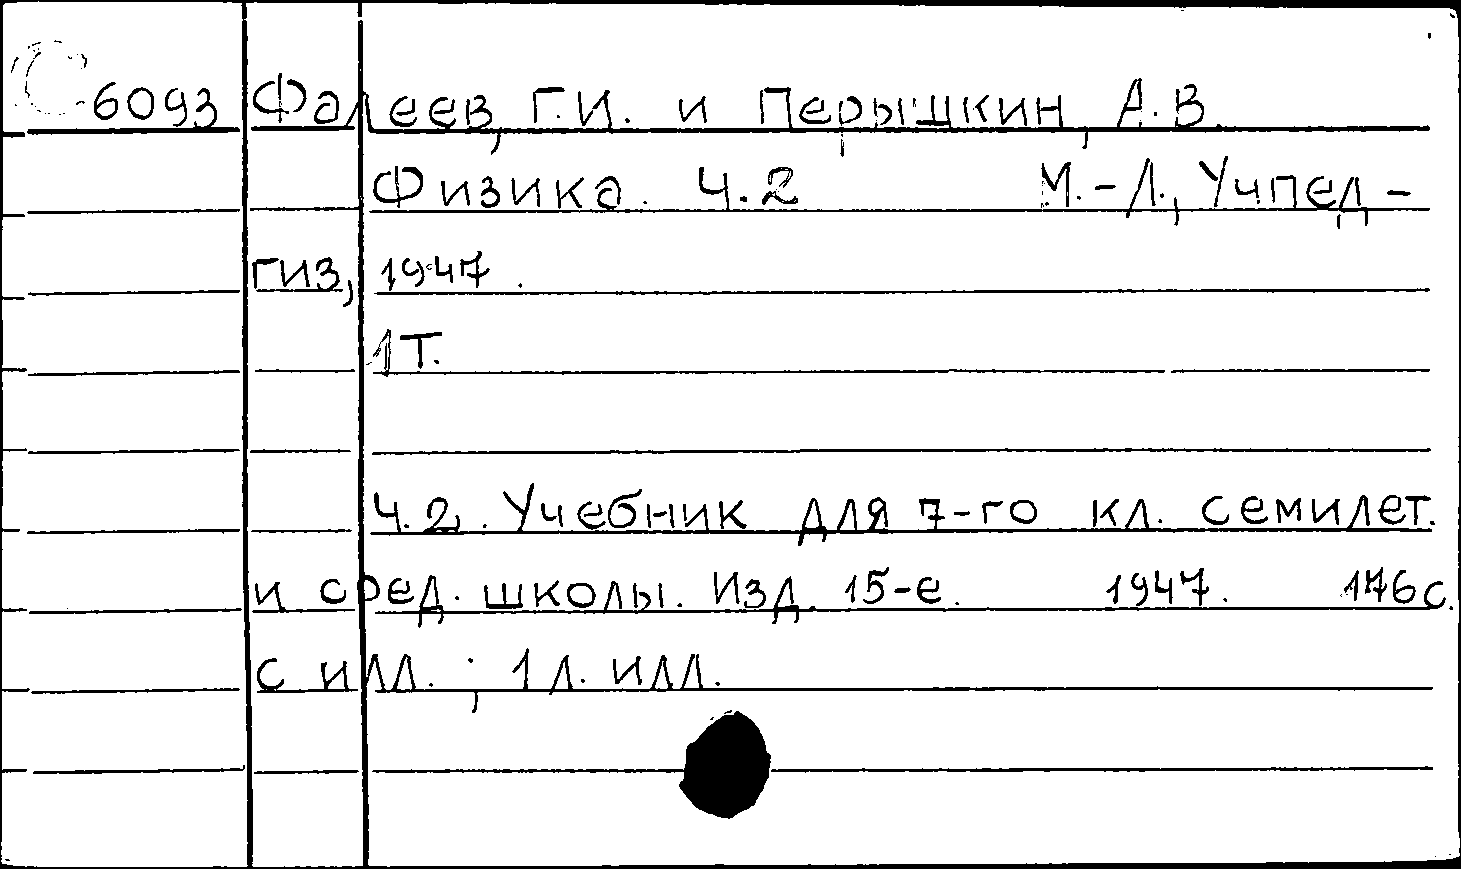 С 6093 Фалеев, Г.И. и Перышкин, А.В.
Физика. Ч.2 М.-Л., Учпед-
гиз, 1947.
1 т.
Ч.2. Учебник для 7-го кл. семилет.
и сред. школы. Изд. 15-е. 1947. 176 с.
с илл.; 1 л. илл.